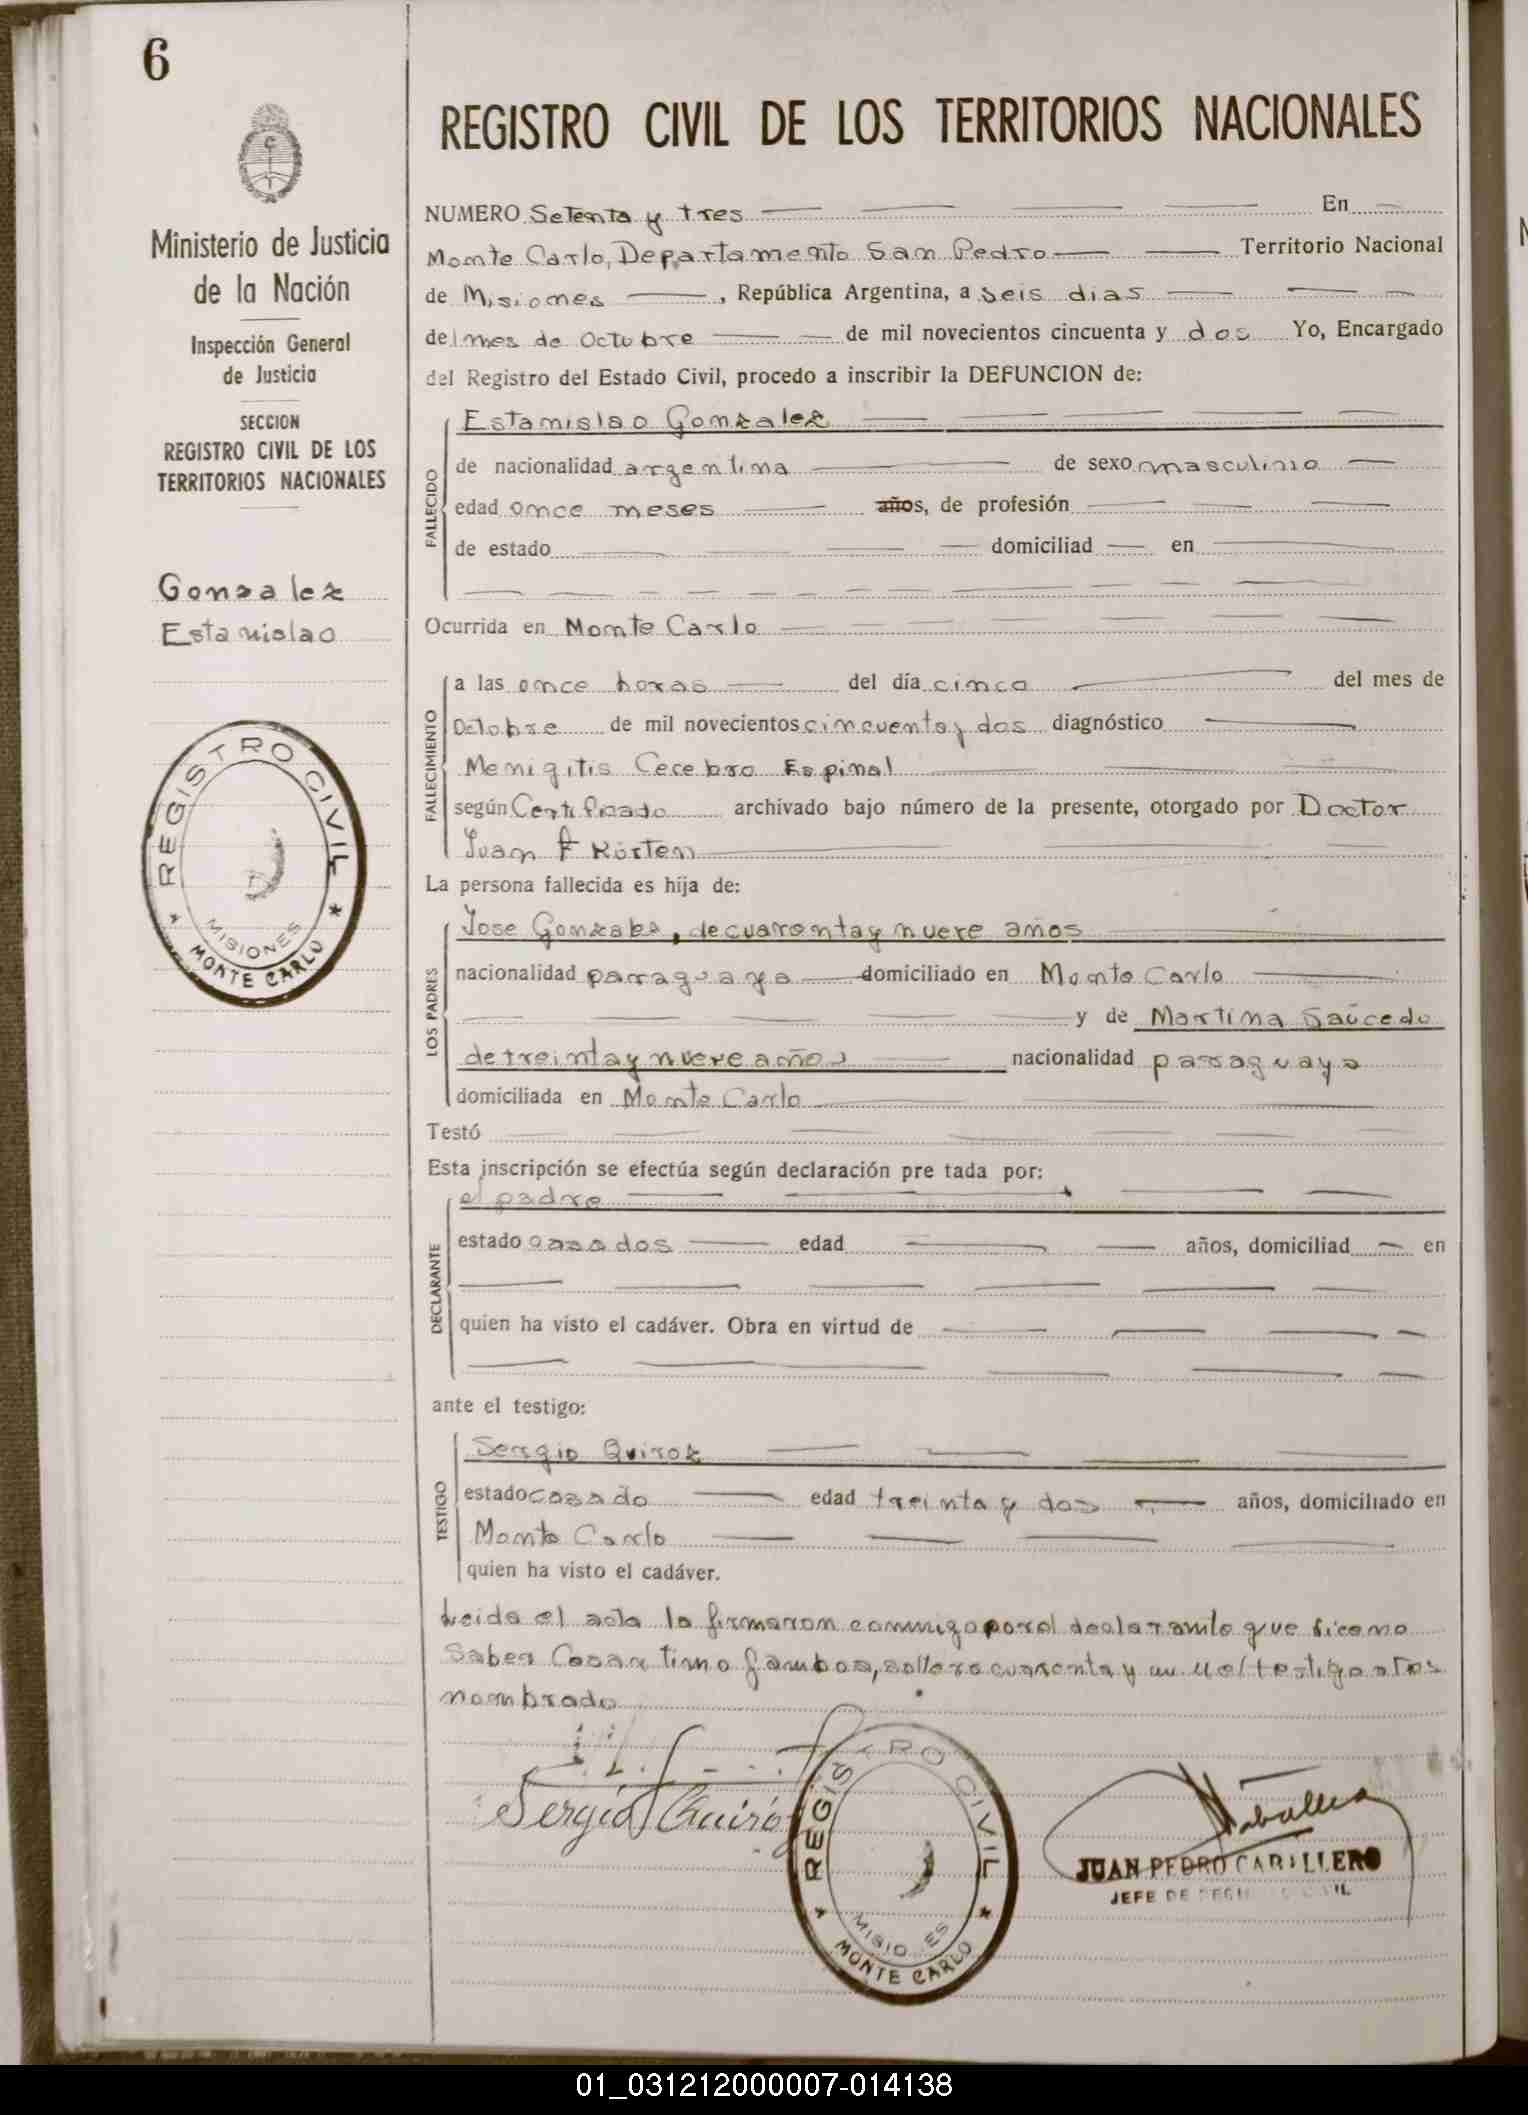 6
REGISTRO CIVIL DE LOS TERRITORIOS NACIONALES
Ministerio de Justicia
de la Nación
Inspección General
de Justicia
SECCION
REGISTRO CIVIL DE LOS
TERRITORIOS NACIONALES
Gonzalez
Estanislao
REGISTRO CIVIL
MISIONES
MONTE CARLO
NUMERO Setenta y tres En
Monte Carlo, Departamento San Pedro Territorio Nacional
de Misiones , República Argentina, a seis dias
del mes de Octubre de mil novecientos cincuenta y dos Yo, Encargado
del Registro del Estado Civil, procedo a inscribir la DEFUNCION de:
Estanislao Gonzalez
FALLECIDO
de nacionalidad argentina de sexo masculino
edad once meses años, de profesión
de estado domiciliad en
Ocurrida en Monte Carlo
FALLECIMIENTO
a las once horas del día cinco del mes de
Octobre de mil novecientos cincuenta y dos diagnóstico
Menigitis Cecebro Espinal
según Certificado archivado bajo número de la presente, otorgado por Doctor
Juan F Körten
La persona fallecida es hija de:
LOS PADRES
Jose Gonzalez, de cuarenta y nueve años
nacionalidad parraguaya domiciliado en Monte Carlo
y de Martina Saúcedo
de treinta y nueve años nacionalidad parraguaya
domiciliada en Monte Carlo
Testó
Esta inscripción se efectúa según declaración pre tada por:
DECLARANTE
el padre
estado casados edad años, domiciliad en
quien ha visto el cadáver. Obra en virtud de
ante el testigo:
TESTIGO
Sergio Quiroz
estado casado edad treinta y dos años, domiciliado en
Monte Carlo
quien ha visto el cadáver.
Leida el acta la firmaron conmigo por el declarante que dice no
saber soltero cuarenta y un testigo
nombrado
Sergio Quiróz
REGISTRO CIVIL
MISIONES
MONTE CARLO
JUAN PEDRO CABALLERO
JEFE DE REGISTRO CIVIL
01_031212000007-014138